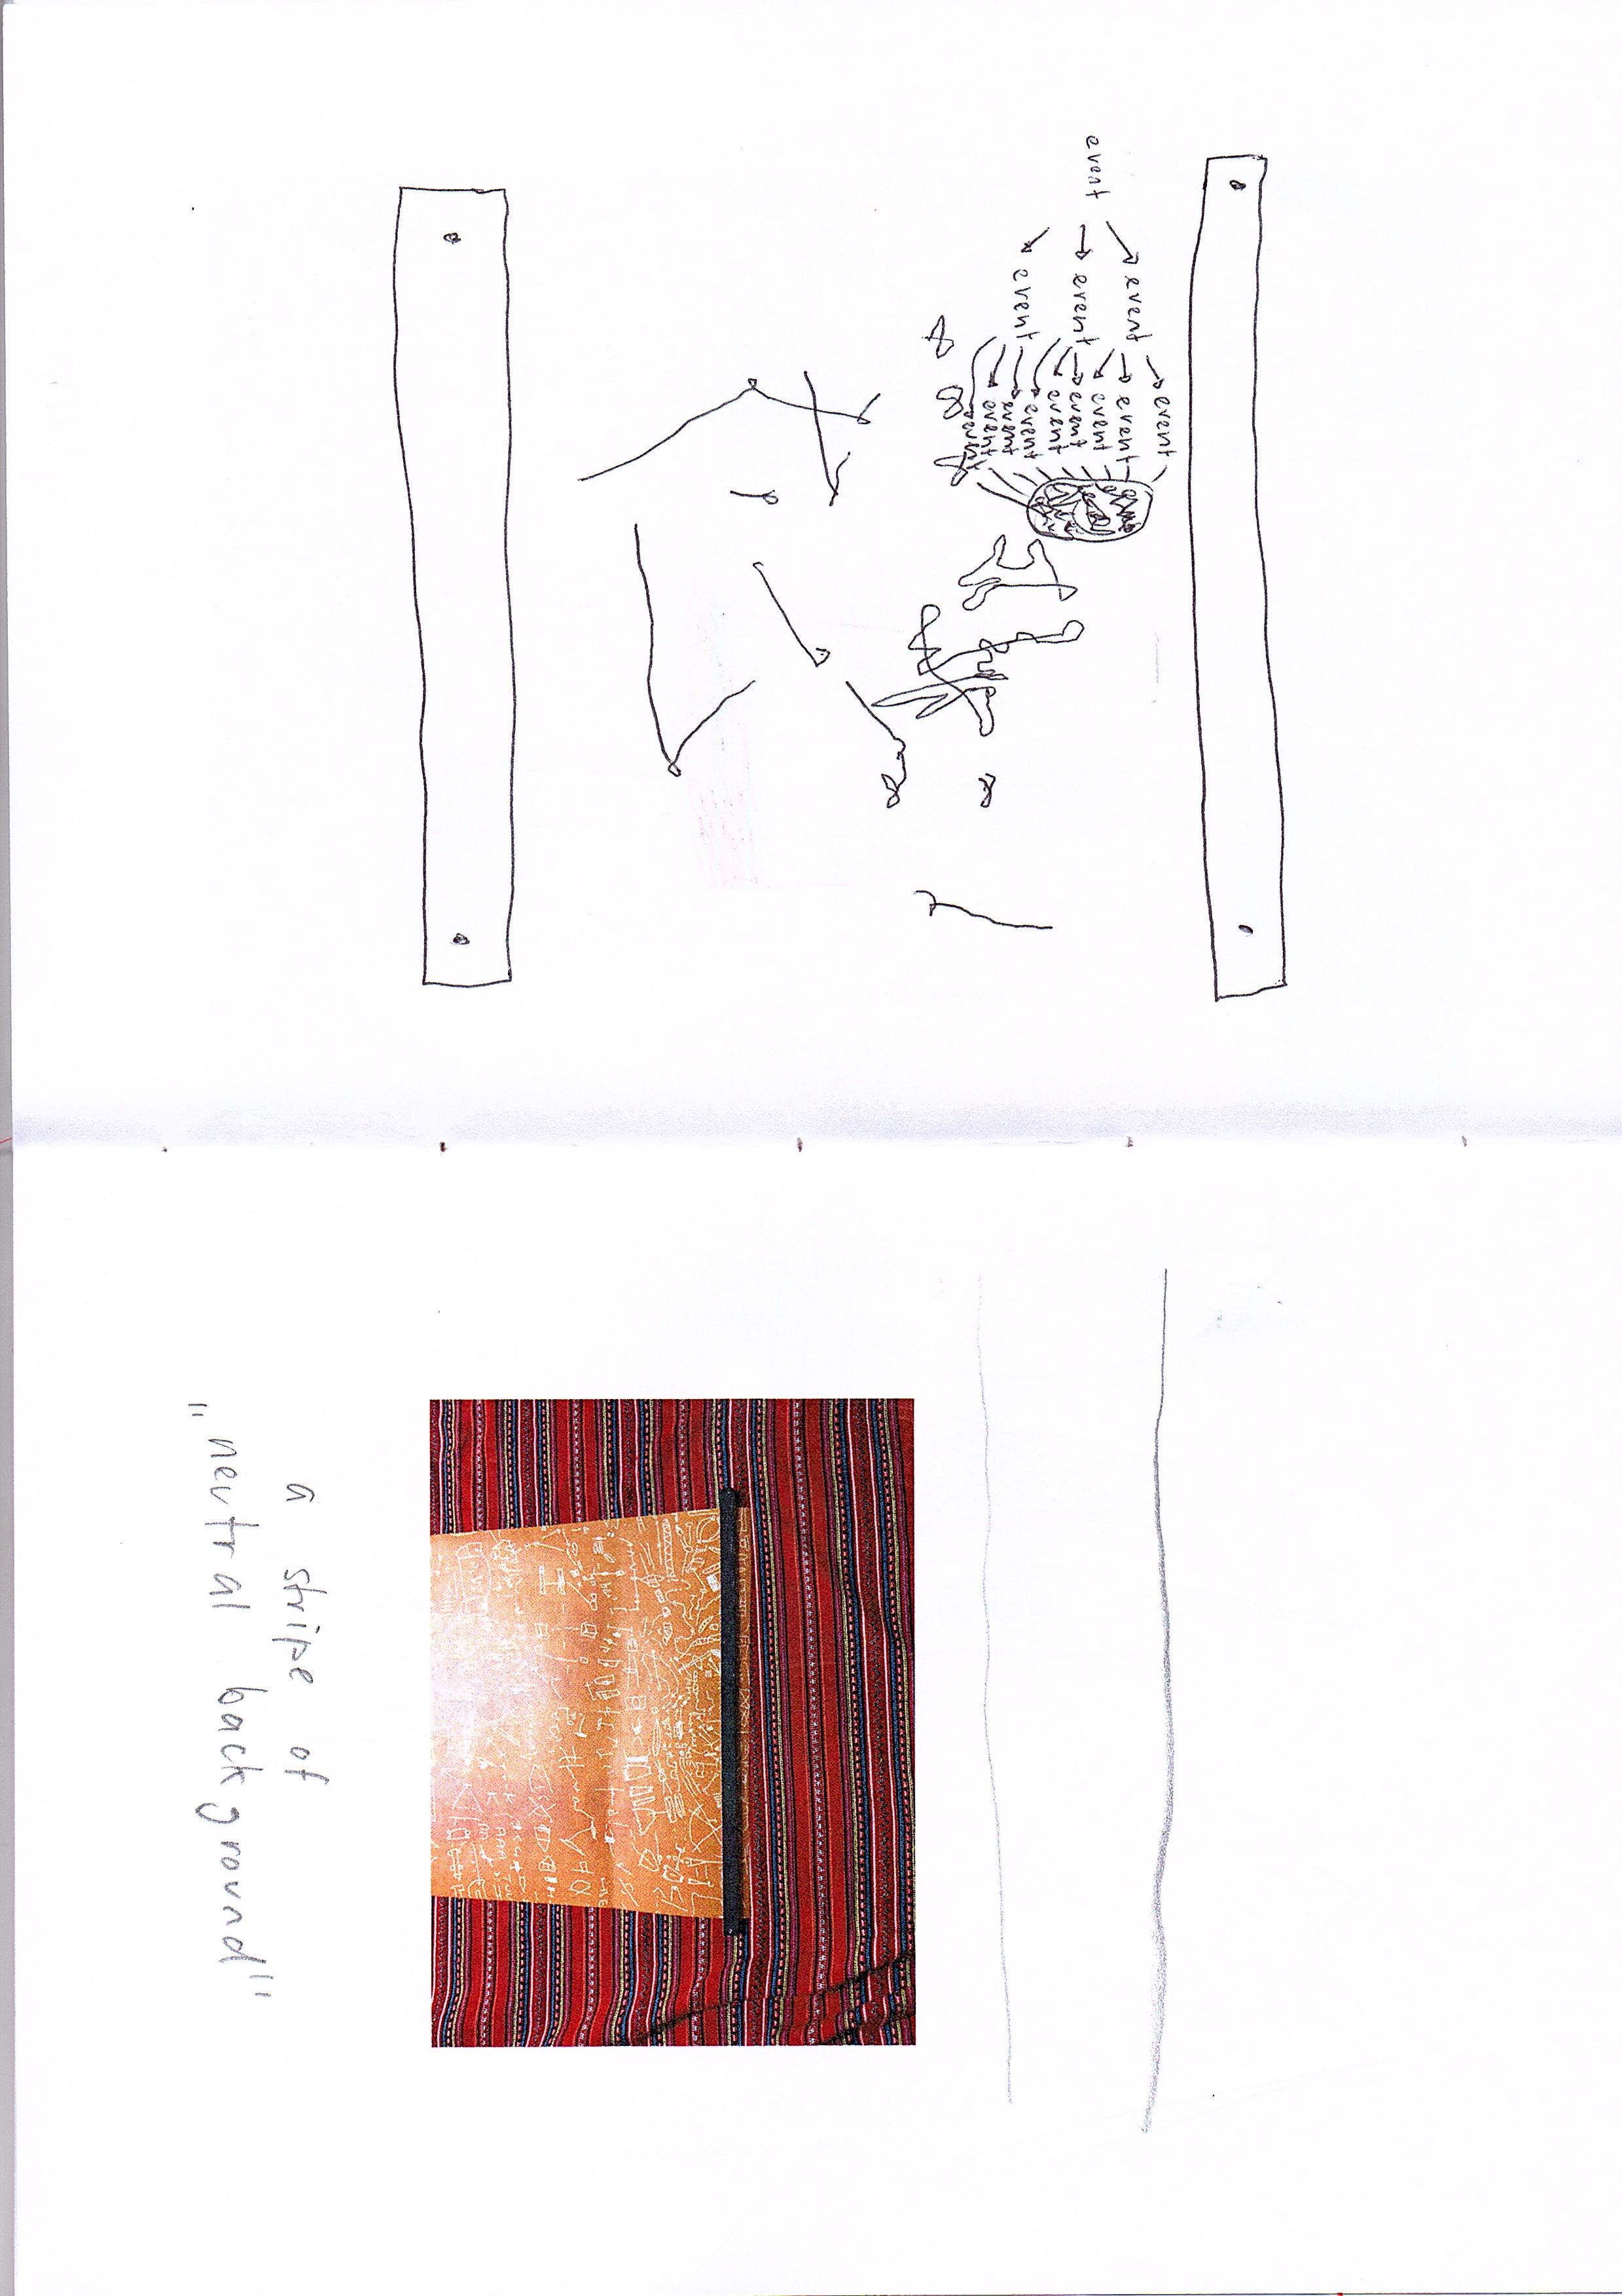 event
event
event
event
event
event
event
event
event
event
event
event
event
a stripe of
„neutral background"